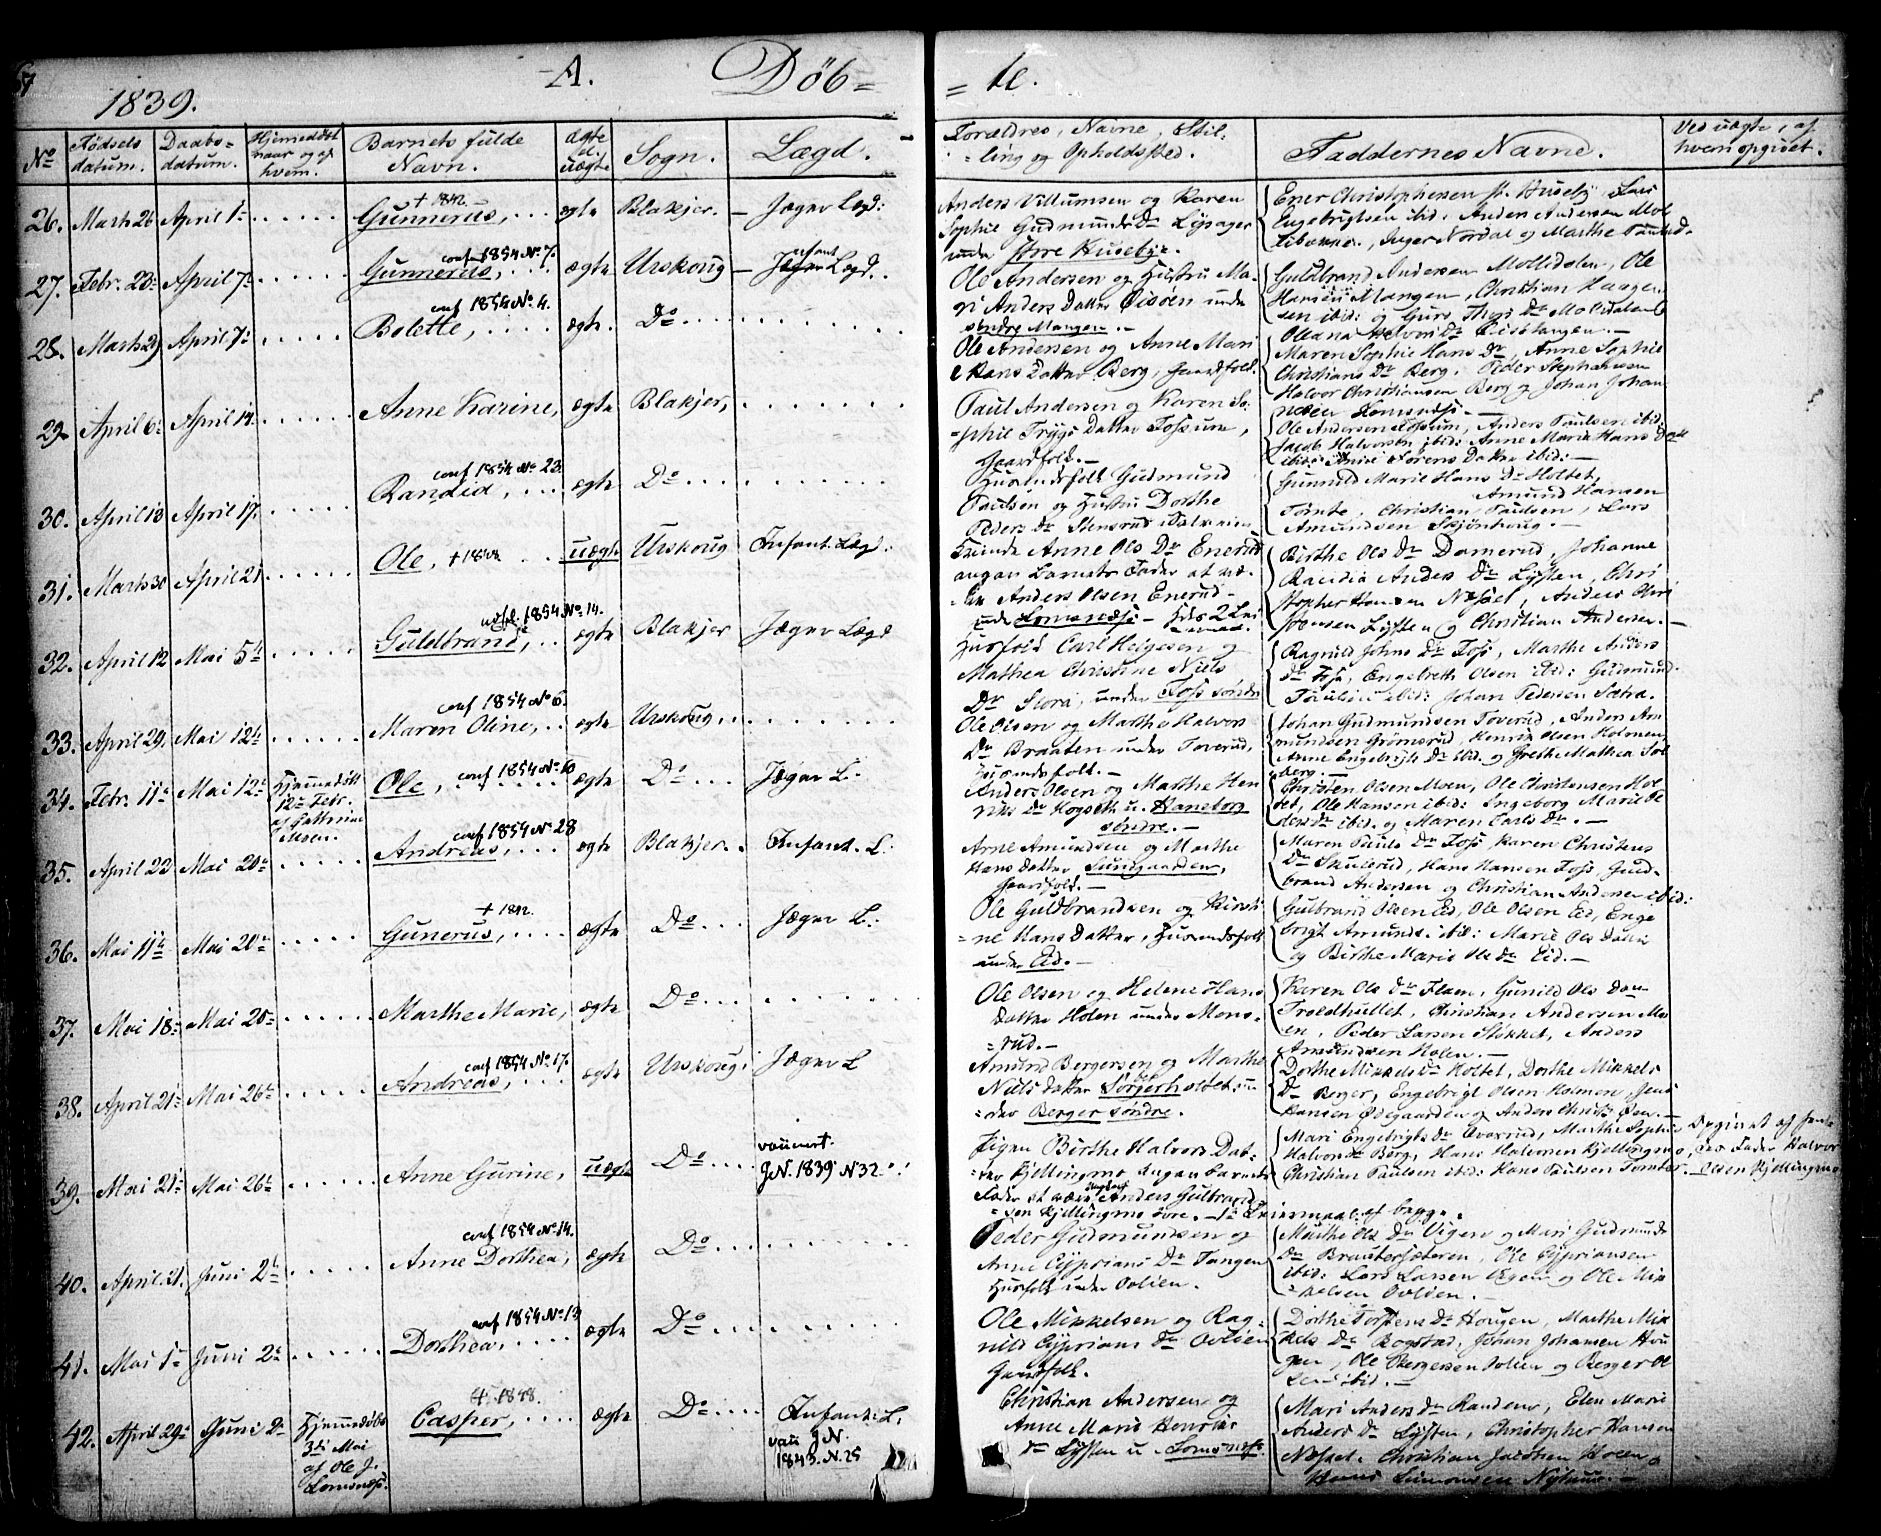 1839.
A. Döb=
= te.
No
Födsels datum.
Daabs= datum.
Hjemmedöbt naar og af hvem.
Barnets fulde Navn.
ægte el. uægte
Sogn.
Lægd.
Forældres, Navne, Stil=
ling og Opholdssted.
Faddernes Navne.
Ved uægte, af
hvem opgivet.
26. Marts 26 April 1: + 1842 Gunnerus, ægte Blakjer. Jæger Lægd:
Anders Villumsen og Karen
Sophie Gudmunds Dr Lysager
under Store Huseby.
Ener Christophersen st. Huseby Lars
Engebrigtsen ibid: Anders Andersen
Inger Nordal og Marthe
27. Febr. 23: April 7: conf 1854 No 7. Gunnerus, ægte Urskoug Infant Lægd.
Ole Andersen og Hustru Ma=
ri Anders Datter under
söndre Mangen.
Guldbrand Andersen Mollidalen, Ole
Hansen Mangen, Christian Haagen
sen ibid: og Guro Thors Dr Mollidalen
Oleana Halvors Dr
28. Marts 29 April 7: conf 1854 No 4. Bolette, ægte. Do
Ole Andersen og Anne Mari
e Hans Datter Berg, Gaardfolk.
Maren Sophie Hans Dr, Anne Sophie
Christians Dr Berg. Peder Stephansen
Halvor Christiansen Berg og Johan Johan
29. April 6: April 14: Anne Karine, ægte Blakjer,
Paul Andersen og Karen So=
phie Trygs Datter Fossum,
Gaardfolk.
Ole Andersen Fossum, Anders Paulsen ibid:
Jacob Halvorsen ibid: Anne Marie Hans Datt
ibid: Anne Sörens Datter ibid:
30. April 13 April 17. conf 1854 No 23 Randid, ægte Do
Husmandsfolk Gudmund
Paulsen og Hustru Dorthe
Peders Dr Stensrud
Gunnild Marie Hans Dr Holtet,
Amund Hansen
Tomte, Christian Paulsen, Lars
Amundsen Skjönhoug.
31. Marts 30 April 21 Ole, uægte Urskoug Infant. Lægd.
Anne Ols Dr Enerud
angav Barnets Fader at væ=
re Anders Olsen Enerud
under Lomsnæs
Birthe Ols Dr Damerud, Johanne
Anders Dr Lysten, Chri
stopher Hansen Næset, Anders Chri
stensen Lysten og Christian Andersen.
32. April 12 Mai 5te 1854 No 14. Guldbrand, ægte Blakjer Jæger Lægd
Husfolk Carl Helgesen og
Mathea Christine Niels
Dr Mora, under Foss söndre
Ragnild Johns Dr Foss, Marthe Anders
Dr Foss, Engebreth Olsen ibid: Gudmund
Paulsen ibid: Johan Pedersen Sætra.
33. April 29. Mai 12te conf 1854 No 6. Maren Oline, ægte Urskoug
Ole Olsen og Marthe Halvors
Dr Braaten under Toverud,
Husmandsfolk.
Johan Gudmundsen Toverud, Anders Am
mundsen Grönsrud, Henrik Olsen Holmen
Anne Engebrigts Dr ibid. og Grethe Mathea Tol
berg.
34. Febr. 11te Mai 12te Hjemmedöbt 12te Febr. af Cathrine Moen. Ole, conf 1854 No 10 ægte Do Jæger L.
Anders Olsen og Marthe Hen
riks Dr Hogseth u. Haneborg
söndre.
Christen Olsen Moen, Ole Christensen Hol
tet, Ole Hansen ibid: Ingeborg Marie Ol
ders Dr ibid. og Maren Carls Dr.
35. April 23 Mai 20te conf 1854 No 28 Andreas, ægte Blakjer. Infant. L.
Arne Amundsen og Marthe
Hans Datter, Sundgaarden,
Gaardfolk.
Maren Pauls Dr Foss, Karen Christens
Dr Skulerud, Hans Hansen Foss, Guld=
brand Andersen og Christian Andersen ibid:
36. Mai 11te Mai 20te + 1842. Gunerus, ægte Do Jæger L.
Ole Guldbrandsen og Kirsti
ne Hans Datter, Husmandsfolk
under Eid.
Gulbrand Olsen Eid, Ole Olsen Eid, Enge
brigt Amunds. ibid: Marie Ols Datter
og Birthe Marie Ols Dr Eid.
37. Mai 18= Mai 20= Marthe Marie, ægte Do
Ole Olsen og Helene Hans
Datter Holen under Mons=
rud.
Karen Ols Dr Flaen, Gunild Ols Dau
Troldhullet, Christian Andersen Mo
en, Peder Larsen Stökket, Anders
Amundsen Holen.
38. April 21= Mai 26te conf 1854 No 17. Andreas, ægte Urskoug Jæger L
Amund Bergersen og Marthe
Niels Datter Sörgerholtet un
der Berger söndre.
Dorthe Mikkels Dr Holtet, Dorthe Mikkels
Dr Berger, Engebrigt Olsen Holmen, Jens
Hansen Ödegaarden og Anders Christs Öen.
39. Mai 21= Mai 26te Anne Gurine, uægte Do J.N. 1839 N 32
Pigen Birthe Halvors Dat=
ter Kjellingmo, angav Barnets
Fader at være Anders Gulbrands
sen Kjellingmo övre. 1te Leiermaal af begge.
Mari Engebrigts Dr Overud, Marthe Sophie
Halvors Dr Berg, Hans Halvorsen Kjellingmo,
Christian Paulsen ibid: Hans Paulsen Tomter
Opgivet af
des Fader Halvor
Olsen Kjellingmo
40. April 21. Juni 2te conf 1854 No 14. Anne Dorthea, ægte Do
Peder Gudmundsen og
Anne Cyprians Dr Tangen
Husfolk under Ovlien.
Marthe Ols Dr Vigen og Mari Gudmunds
Dr Braatersæteren, Ole Cypriansen
ibid: Lars Larsen og Ole Mik
kelsen Ovlien.
41. Mai 1= Juni 2= conf 1854 No 13 Dorthea, ægte Do
Ole Mikkelsen og Rag=
nild Cyprians Dr Ovlien
Gaardfolk.
Dorthe Torstens Dr Hougen, Marthe Mik
kels Dr Bogstad, Johan Johansen Hou
gen, Ole Bergersen Ovlien og Berger Ol
sen ibid.
42. April 29= Juni 2= Hjemmedöbt 3die Mai af Ole J. Lomsnæs. + 1848. Casper, ægte Do Infant: L. J.N. 1843. N. 25
Christian Andersen og
Anne Marie Henriks
Dr Lysten u. Lomsnæs
Mari Anders Dr Randem, Elen Marie
Anders Dr Lysten, Christopher Hansen
Næset. Christian Jacobsen Hoen
Hans Simonsen Nystuen.